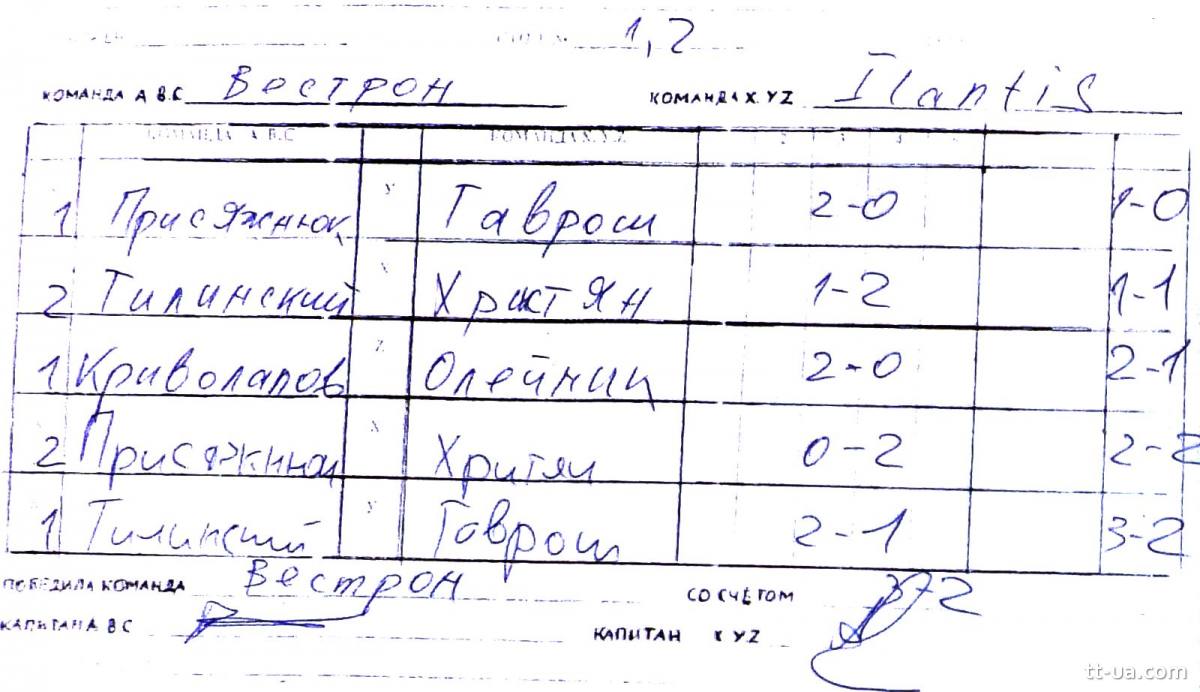 1,2
КОМАНДА А В.С Вестрон КОМАНДА X.YZ Ilantis
КОМАНДА А В.С КОМАНДА X.Y.Z 2 3 4
1 Присяжнюк Y Гаврош 2-0 1-0
2 Тилинский X Христян 1-2 1-1
1 Криволапов Z Олейниц 2-0 2-1
2 Присяжнюк X Хритян 0-2 2-2
1 Тилинский Y Гаврош 2-1 3-2
ПОБЕДИЛА КОМАНДА Вестрон СО СЧЁТОМ 3-2
КАПИТАН А В С КАПИТАН X YZ
tt-ua.com